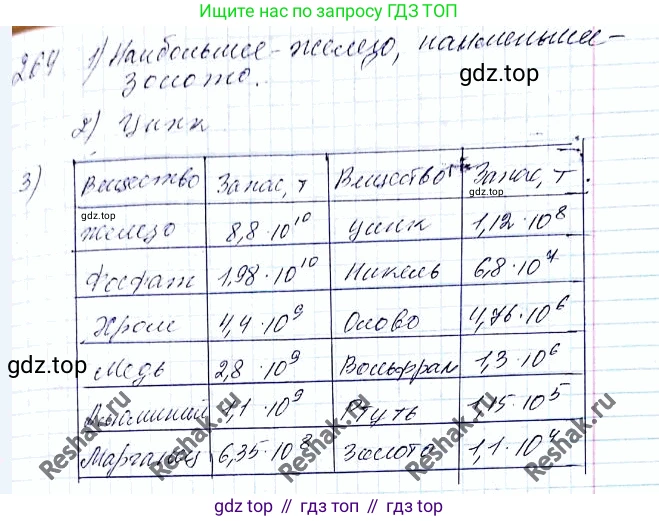 Ищите нас по запросу ГДЗ ТОП
269 1) Наибольшее - железо, наименьшее -
золото.
gdz.top
2) Цинк
3)
Вещество Запас, т Вещество Запас, т
gdz.top
gdz.top
железо 8,8·10¹⁰ цинк 1,12·10⁸
Фосфат 1,98·10¹⁰ Никель 6,8·10⁷
Хром 4,4·10⁹ Олово 4,76·10⁶
Медь 2,8·10⁹ Вольфрам 1,3·10⁶
gdz.top
gdz.top
Алюминий 1,1·10⁹ Ртуть 1,15·10⁵
Марганец 6,35·10⁸ Золото 1,1·10⁴
Reshak.ru
Reshak.ru
Reshak.ru
Reshak.ru
gdz top // гдз топ // gdz top // гдз топ